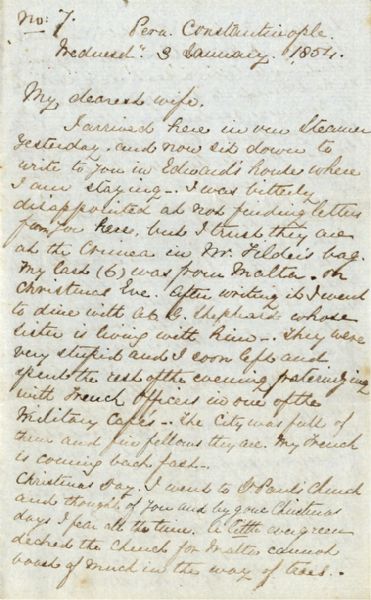 No: 7.
Pera. Constantinople.
Wednesdy 3 January. 1854.
My dearest wife.
I arrived here in our Steamer
yesterday. and now sit down to
write to you in Edward's house where
I am staying - I was bitterly
disappointed at not finding letters
from you here, but I trust they are
at the Crimea in Mr. Filder's bag.
My last (6) was from Malta. on
Christmas Eve. After writing it I went
to dine with Shephard whose
sister is living with him -. They were
very stupid and I soon left and
spent the rest of the evening fraternizing
with French Officers in one of the
Military Cafés -. The City was full of
them and fine fellows they are. My French
is coming back fast -.
Christmas day. I went to St Paul's Church
and thought of you and by gone Christmas
days I fear all the time. A little evergreen
decked the Church for Malta cannot
boast of much in the way of trees. -